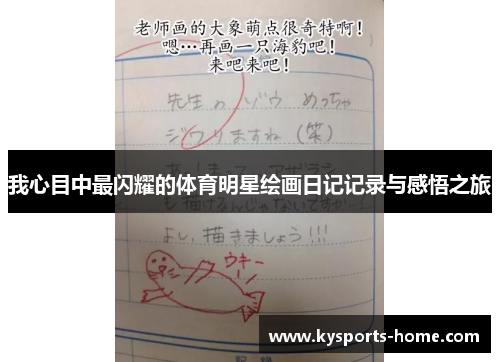 老师画的大象萌点很奇特啊！
嗯…再画一只海豹吧！
来吧来吧！
先生の ゾウ めっちゃ
ジワりますね（笑）
我心目中最闪耀的体育明星绘画日记记录与感悟之旅
も描けるんじゃないですか
よし、描きましょう!!!
ウキー
www.kysports-home.com